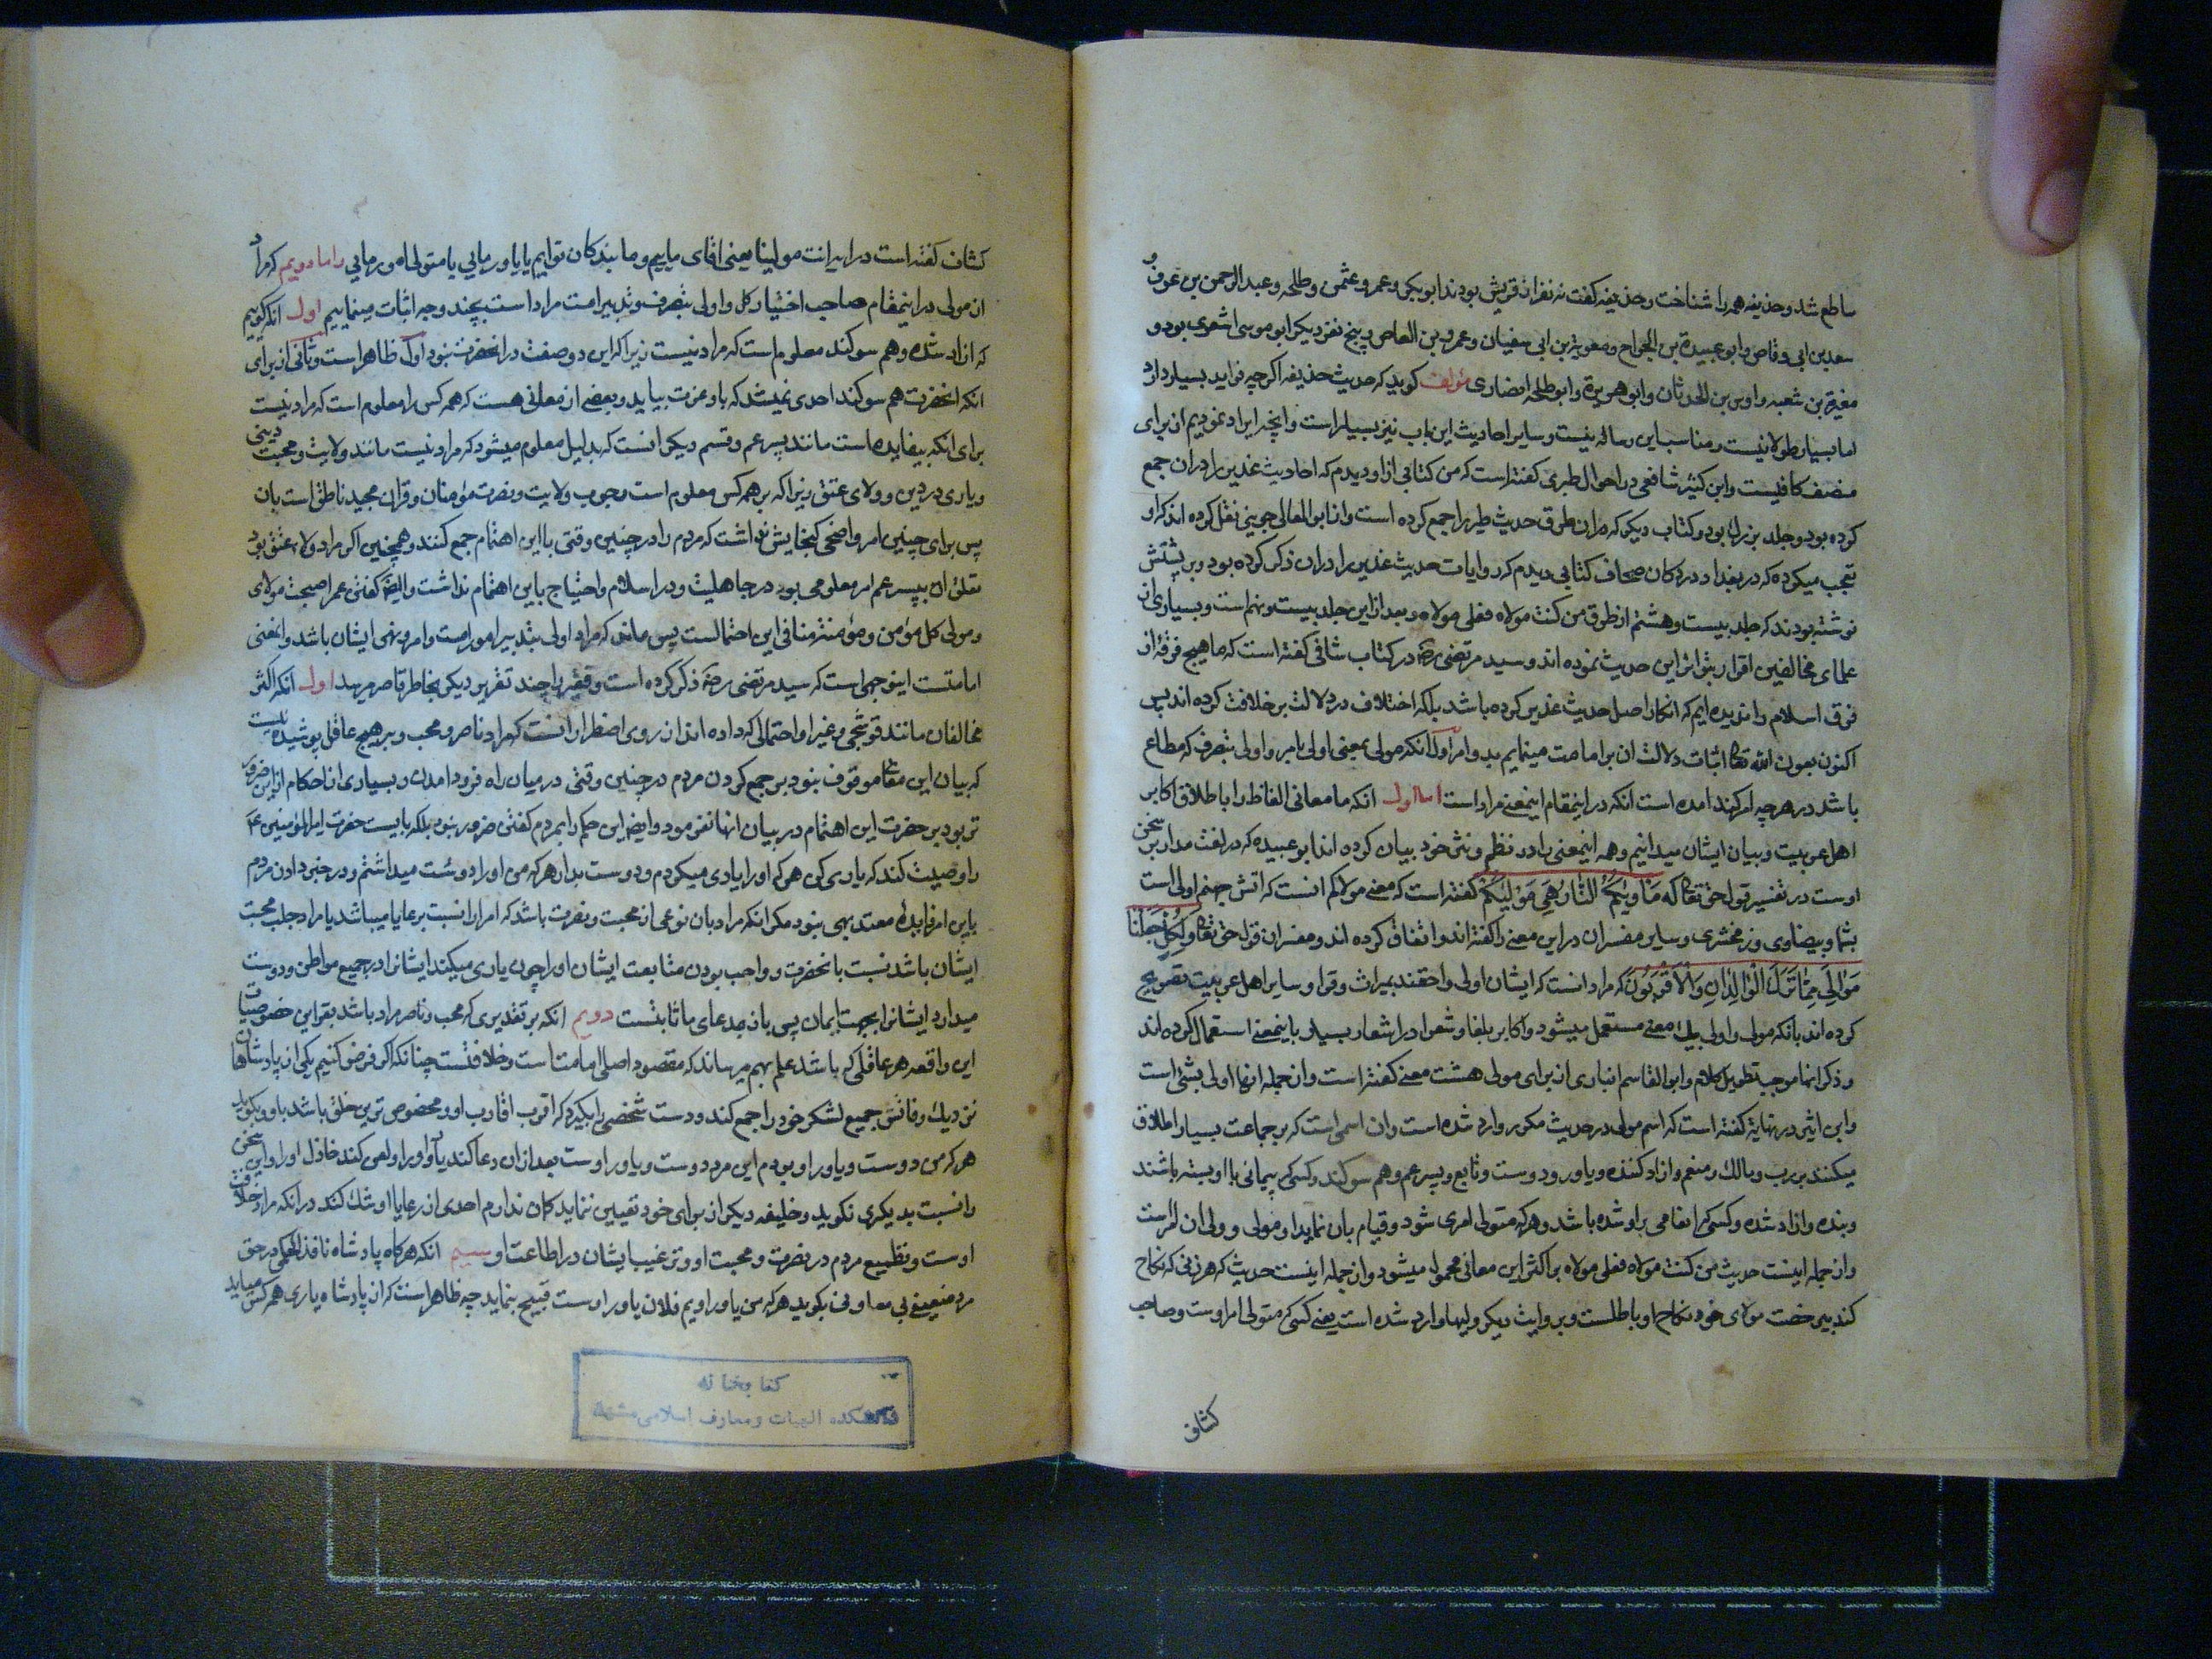 ساطع شد و حذیفه همه را شناخت و حذیفه گفت نه نفر از قریش بودند ابوبکر و عمر و عثمن و طلحه و عبدالرحمن بن عوف و
سعد بن ابی وقاص و ابو عبیدة بن الجراح و معویة بن ابی سفیان و عمرو بن العاص و پنج نفر دیکر ابو موسی اشعری بود و
مغیرة بن شعبه و اوس بن الحدثان و ابو هریرة و ابو طلحه انصاری مؤلف کوید که حدیث حذیفه اکرچه فواید بسیار دارد
اما بسیار طولانیست و مناسب این رساله نیست و سایر احادیث این باب نیز بسیار است و آنچه ایراد نمودیم از برای
منصف کافیست و ابن کثیر شافعی در احوال طبری کفته است که من کتابی از او دیدم که احادیث غدیر را در ان جمع
کرده بود و جلد بزرك بود و کتاب دیکر که در ان طرق حدیث طیر را جمع کرده است و از ابو المعالی جوینی نقل کرده اند که او
تعجب میکرده که در بغداد در دکان صحاف کتابی دیدم که روایات حدیث غدیر را در ان ذکر کرده بود و بر پشتش
نوشته بودند که جلد بیست و هشتم از طرق من کنت مولاه فعلی مولاه و بعد از این جلد بیست و نهم است و بسیاری از
علمای مخالفین اقرار بتواتر این حدیث نموده اند و سید مرتضی رضه در کتاب شافی کفته است که ما هیچ فرقه از
فرق اسلام را ندیده ایم که انکار اصل حدیث غدیر کرده باشد بلکه اختلاف در دلالت بر خلافت کرده اند پس
اکنون بعون الله تعا اثبات دلالت ان بر امامت مینمایم بدو امر اول انکه مولی بمعنی اولی بامر و اولی بتصرف که مطاع
باشد در هر چه امر کند امده است انکه در اینمقام اینمعنی مراد است اما اول انکه ما معانی الفاظ را باطلاق اکابر
اهل عربیت و بیان ایشان میدانیم و همه اینمعنی را در نظم و نثر خود بیان کرده اند ابو عبیده که در لغت مدار بر سخن
اوست در تفسیر قول حق تعا که مَاویٰکُمُ النَّارُ هِیَ مَوْلیٰکُمْ کفته است که معنی مولاکم انست که اتش جهنم اولی است
بشما و بیضاوی و زمخشری و سایر مفسران در این معنی را کفته اند و اتفاق کرده اند و مفسران قول حق تعا وَلِکُلٍّ جَعَلْنَا
مَوَالِیَ مِمَّا تَرَكَ الْوَالِدَانِ وَالْاَقْرَبُونَ که مراد انست که ایشان اولی و احقند بمیراث و قرا و سایر اهل عربیت تصریح
کرده اند بانکه مولی و اولی بیك معنی مستعمل میشود و اکابر بلغا و شعرا در اشعار بسیار باینمعنی استعمال کرده اند
و ذکر انها موجب تطویل کلام و ابو القاسم انباری از برای مولی هشت معنی کفته است و از جمله انها اولی بشئ است
و ابن اثیر در نهایة کفته است که اسم مولی در حدیث مکرر وارد شده است و ان اسمی است که بر جماعت بسیار اطلاق
میکنند بر رب و مالك و منعم و ازاد کننده و یاور و دوست و تابع و پسر عم و هم سوکند و کسی که پیمانی با او بسته باشند
و بنده و ازاد شده و کسی که انعامی بر او شده باشد و هر که متولی امری شود و قیام بان نماید او مولی و ولی ان امرست
و از جمله اینست حدیث من کنت مولاه فعلی مولاه بر اکثر این معانی محمول میشود و از جمله اینست حدیث که هر زنی که نکاح
کند بی رخصت مولای خود نکاح او باطلست و بروایت دیکر ولیها وارد شده است یعنی کسی که متولی امر اوست و صاحب
کشاف
کشاف کفته است در ایه انت مولینا یعنی اقای مایی و ما بندکان توایم یا یاور مایی یا متولی امور مایی و اما دویم که مراد
از مولی در اینمقام صاحب اختیار کل و اولی بتصرف و تدبیر امت مراد است بچند وجه اثبات مینماییم اول انکه کوییم
که ازاد شده و هم سوکند معلوم است که مراد نیست زیرا که این دو صفت در انحضرت نبود اول ظاهر است و ثانی از برای
انکه انحضرت هم سوکند احدی نمیشد که باو عزت بیابد و بعضی از معانی هست که همه کس را معلوم است که مراد نیست
برای انکه بیفایده است مانند پسر عم و قسم دیکر انست که بدلیل معلوم میشود که مراد نیست مانند ولایت و محبت دینی
و یاری در دین و ولای عتق زیرا که بر همه کس معلوم است وجوب ولایت و نصرت مؤمنان و قران مجید ناطق است بان
پس برای چنین امر واضحی کنجایش نداشت که مردم را در چنین وقتی با این اهتمام جمع کنند و همچنین اکر مراد ولاء عتق بود
تعلق ان بپسر عم امر معلومی بود در جاهلیت و در اسلام و احتیاج باین اهتمام نداشت و ایضا کفتن عمر اصبحت مولای
و مولی کل مؤمن و مؤمنة منافی این احتمالست پس ماند که مراد اولی بتدبیر امور امت و امر و نهی ایشان باشد و انمعنی
امامتست اینوجهی است که سید مرتضی رضه ذکر کرده است و فقیر را چند تقریر دیکر بخاطر قاصر میرسد اول انکه اکثر
مخالفان مانند قوشجی و غیر او احتمالی که داده اند از روی اضطرار انست که مراد ناصر و محب و بر هیچ عاقل پوشیده نیست
که بیان این معنی موقوف نبود بر جمع کردن مردم در چنین وقتی در میان راه فرود امدن و بسیاری از احکام از این ضرور
تر بود بر حضرت این اهتمام در بیان انها نفرمود و ایضا این حکم را بمردم کفتن ضرور نبود بلکه بایست حضرت امیر المؤمنین ع
را وصیت کند که یاری کن هر که او را یاری میکردم و دوست بدار هر که من او را دوست میداشتم و در خبر دادن مردم
باین امر فایدهٔ معتد بهی نبود مکر انکه مراد بان نوعی از محبت و نصرت باشد که امرا را نسبت برعایا میباشد یا مراد جلب محبت
ایشان باشد نسبت بانحضرت و واجب بودن متابعت ایشان او را چون یاری میکند ایشانرا در جمیع مواطن و دوست
میدارد ایشانرا بجهت ایمان پس باز مدعای ما ثابتست دویم انکه بر تقدیری که محب و ناصر مراد باشد بقراین خصوصیات
این واقعه هر عاقلی که باشد علم بهم میرساند که مقصود اصلی امامت است و خلافتست چنانکه اکر فرض کنیم یکی از پادشاهان
نزدیك وفاتش جمیع لشکر خود را جمع کند و دست شخصی را بکیرد که اقرب اقارب او و مخصوص ترین خلق باشد باو و بکوید
هر که من دوست و یاور او بودم این مرد دوست و یاور اوست بعد از ان دعا کند یاور او را و لعن کند خاذل او را و این سخن
را نسبت بدیکری نکوید و خلیفه دیکر از برای خود تعیین ننماید کمان ندارم احدی از رعایا او شك کند در انکه مراد خلافت
اوست و تطمیع مردم در نصرت و محبت او و ترغیب ایشان در اطاعت او سیم انکه هر کاه پادشاه نافذ الحکمی در حق
مرد ضعیفی بی معاونی بکوید هر که من یاور اویم فلان یاور اوست قبیح بنماید چه ظاهر است که از پادشاه یاری همه کس میاید
کتابخانه
دانشکده الهیات و معارف اسلامی مشهد